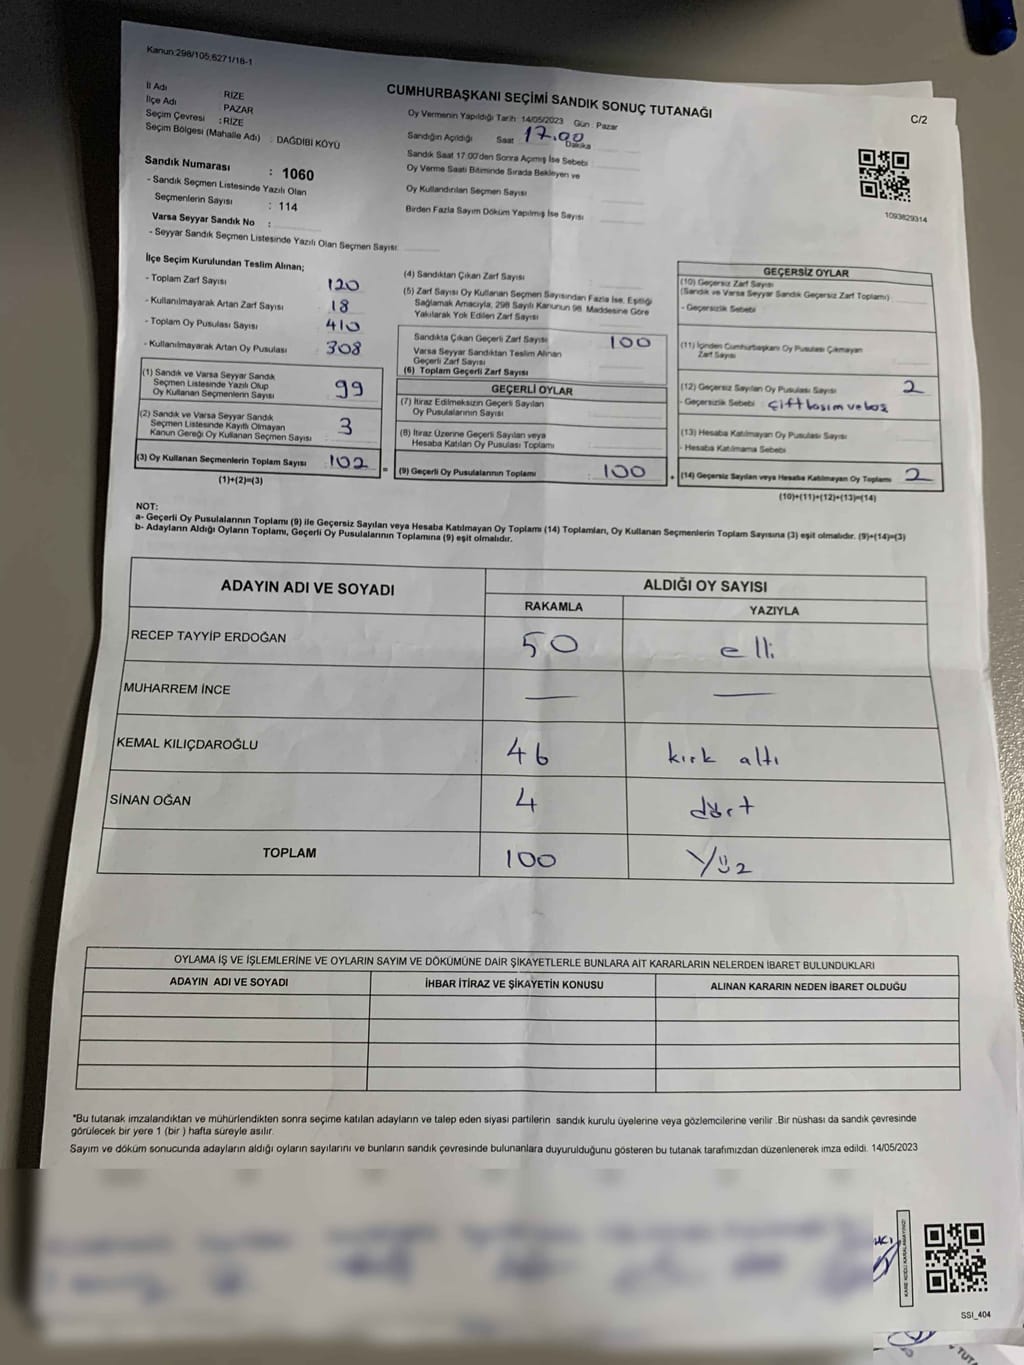 Kanun:298/105;6271/18-1
CUMHURBAŞKANI SEÇİMİ SANDIK SONUÇ TUTANAĞI
C/2
İl Adı : RİZE
İlçe Adı : PAZAR
Seçim Çevresi : RİZE
Seçim Bölgesi (Mahalle Adı) : DAĞDİBİ KÖYÜ
Sandık Numarası : 1060
- Sandık Seçmen Listesinde Yazılı Olan
Seçmenlerin Sayısı : 114
Varsa Seyyar Sandık No :
- Seyyar Sandık Seçmen Listesinde Yazılı Olan Seçmen Sayısı:
Oy Vermenin Yapıldığı Tarih :14/05/2023 Gün : Pazar
Sandığın Açıldığı Saat 17.00 Dakika
Sandık Saat 17:00'den Sonra Açımış İse Sebebi
Oy Verme Saati Bitiminde Sırada Bekleyen ve
Oy Kullandırılan Seçmen Sayısı
Birden Fazla Sayım Döküm Yapılmış İse Sayısı
1093829314
İlçe Seçim Kurulundan Teslim Alınan;
- Toplam Zarf Sayısı 120
- Kullanılmayarak Artan Zarf Sayısı 18
- Toplam Oy Pusulası Sayısı 410
- Kullanılmayarak Artan Oy Pusulası 308
(1) Sandık ve Varsa Seyyar Sandık
Seçmen Listesinde Yazılı Olup
Oy Kullanan Seçmenlerin Sayısı 99
(2) Sandık ve Varsa Seyyar Sandık
Seçmen Listesinde Kayıtlı Olmayan
Kanun Gereği Oy Kullanan Seçmen Sayısı 3
(3) Oy Kullanan Seçmenlerin Toplam Sayısı 102
(1)+(2)=(3)
(4) Sandıktan Çıkan Zarf Sayısı
(5) Zarf Sayısı Oy Kullanan Seçmen Sayısından Fazla İse, Eşitliği
Sağlamak Amacıyla, 298 Sayılı Kanunun 98. Maddesine Göre
Yakılarak Yok Edilen Zarf Sayısı
Sandıkta Çıkan Geçerli Zarf Sayısı 100
Varsa Seyyar Sandıktan Teslim Alınan
Geçerli Zarf Sayısı
(6) Toplam Geçerli Zarf Sayısı
GEÇERLİ OYLAR
(7) İtiraz Edilmeksizin Geçerli Sayılan
Oy Pusulalarının Sayısı
(8) İtiraz Üzerine Geçerli Sayılan veya
Hesaba Katılan Oy Pusulası Toplamı
= (9) Geçerli Oy Pusulalarının Toplamı : 100
GEÇERSİZ OYLAR
(10) Geçersiz Zarf Sayısı
(Sandık ve Varsa Seyyar Sandık Geçersiz Zarf Toplamı)
- Geçersizlik Sebebi
(11) İçinden Cumhurbaşkanı Oy Pusulası Çıkmayan
Zarf Sayısı
(12) Geçersiz Sayılan Oy Pusulası Sayısı 2
- Geçersizlik Sebebi : çift basım ve boş
(13) Hesaba Katılmayan Oy Pusulası Sayısı
- Hesaba Katılmama Sebebi
+ (14) Geçersiz Sayılan veya Hesaba Katılmayan Oy Toplamı 2
(10)+(11)+(12)+(13)=(14)
NOT:
a- Geçerli Oy Pusulalarının Toplamı (9) ile Geçersiz Sayılan veya Hesaba Katılmayan Oy Toplamı (14) Toplamları, Oy Kullanan Seçmenlerin Toplam Sayısına (3) eşit olmalıdır. (9)+(14)=(3)
b- Adayların Aldığı Oyların Toplamı, Geçerli Oy Pusulalarının Toplamına (9) eşit olmalıdır.
ADAYIN ADI VE SOYADI
ALDIĞI OY SAYISI
RAKAMLA YAZIYLA
RECEP TAYYİP ERDOĞAN 50 elli
MUHARREM İNCE — —
KEMAL KILIÇDAROĞLU 46 kırk altı
SİNAN OĞAN 4 dört
TOPLAM 100 Yüz
OYLAMA İŞ VE İŞLEMLERİNE VE OYLARIN SAYIM VE DÖKÜMÜNE DAİR ŞİKAYETLERLE BUNLARA AİT KARARLARIN NELERDEN İBARET BULUNDUKLARI
ADAYIN ADI VE SOYADI İHBAR İTİRAZ VE ŞİKAYETİN KONUSU ALINAN KARARIN NEDEN İBARET OLDUĞU
*Bu tutanak imzalandıktan ve mühürlendikten sonra seçime katılan adayların ve talep eden siyasi partilerin sandık kurulu üyelerine veya gözlemcilerine verilir .Bir nüshası da sandık çevresinde
görülecek bir yere 1 (bir ) hafta süreyle asılır.
Sayım ve döküm sonucunda adayların aldığı oyların sayılarını ve bunların sandık çevresinde bulunanlara duyurulduğunu gösteren bu tutanak tarafımızdan düzenlenerek imza edildi. 14/05/2023
KARE KODU KARALAMAYINIZ!
SSI_404